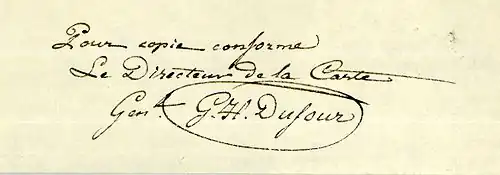 Pour copie conforme
Le Directeur de la Carte
Genl. G. H. Dufour